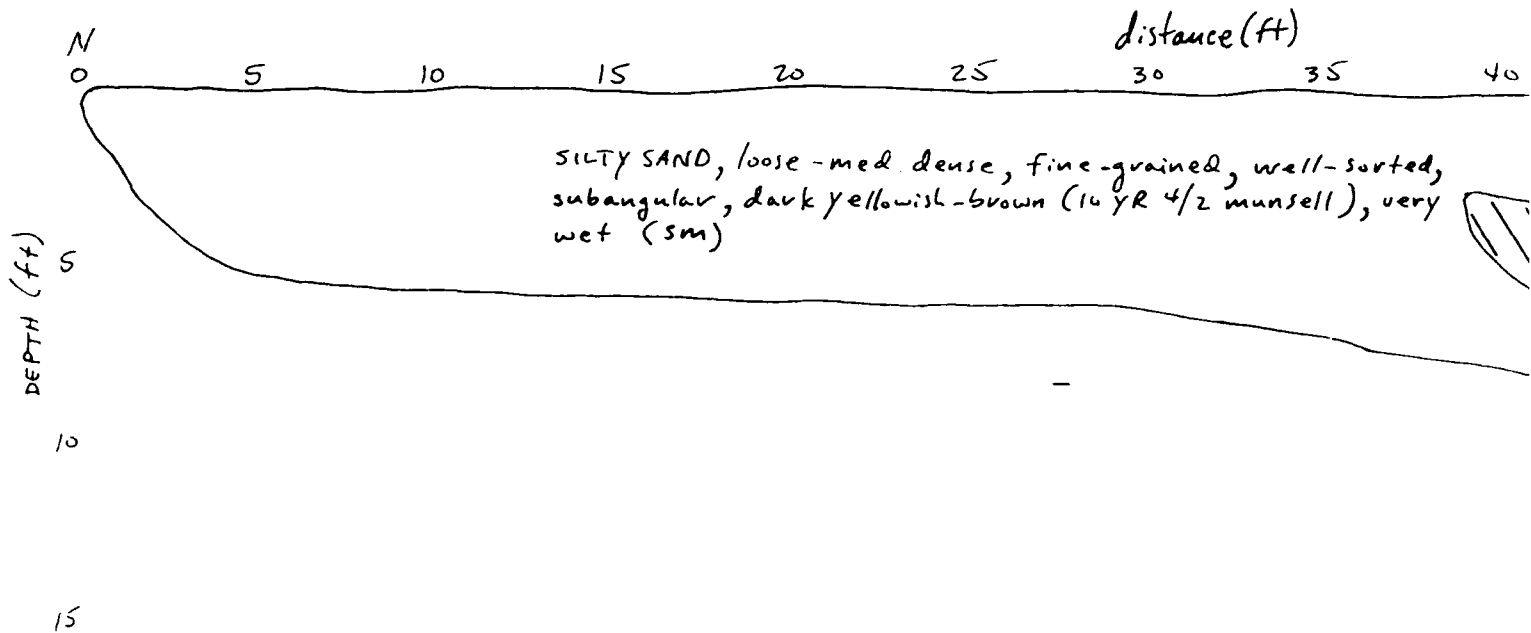 distance (ft)
N
0 5 10 15 20 25 30 35 40
SILTY SAND, loose-med. dense, fine-grained, well-sorted,
subangular, dark yellowish-brown (10 YR 4/2 munsell), very
wet (SM)
DEPTH (ft)
5
10
15